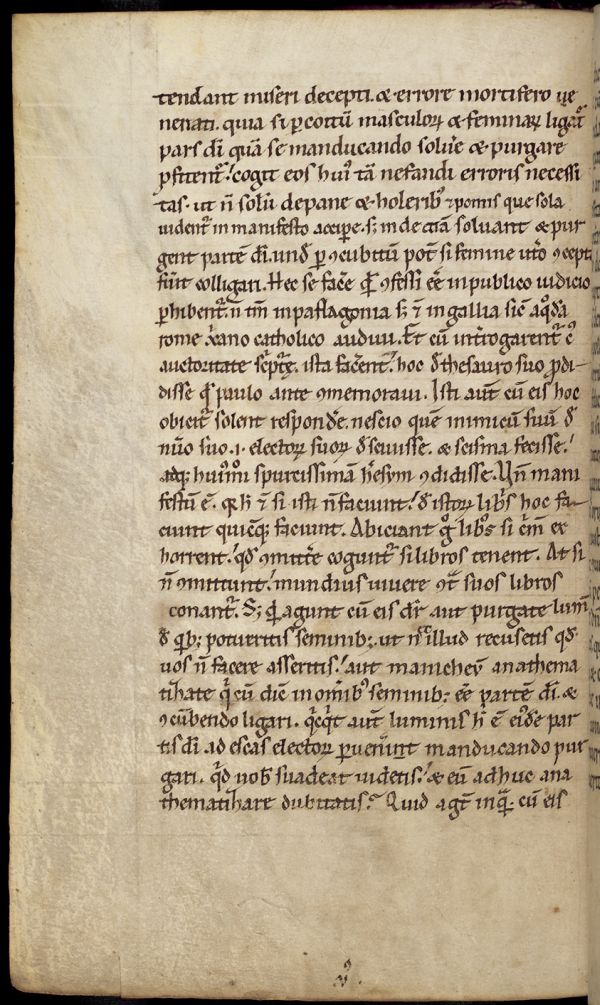 tendant miseri decepti. & errore mortifero ve
nenati. quia si p coitū masculoꝝ & feminaꝝ ligat᷑
pars dī quā se manducando soluͥe & purgare
ꝓfitent᷑! cogit eos huiꝰ tā nefandi erroris necessi
tas. ut n̄ solū de pane & holeribꝰ & pomis que sola
uident᷑ in manifesto accipe. sꝫ inde etiā soluant & pur
gent partē dī. und̄ p ꝯcubitū pot̄ si femine utͦo ꝯcepͭ
fūit colligari. Hec se facͤe qͥ ꝯfessi ēē in publico iudicio
phibent᷑. n̄ tm̄ in paflagonia sꝫ ⁊ in gallia sic̄ a qͦdā
rome xͬano catholico audiui. Et cū int᷑rogarent᷑ cͥ
auctoritate scͥptͤ. ista facͤent! hoc đ thesauro suo ꝓdi
disse qͥ paulo ante ꝯmemoraui. Isti aut̄ cū eis hoc
obicit᷑ solent respondͤe. nescio quē inimicū suū đ
nūo suo .i. electoꝝ suoꝝ đsciuisse. & scisma fecisse!
atqꝫ huiꝰmōi spurcissimā hͤesym ꝯdidisse. Vn̄ mani
festū ē. qͩ h̄ ⁊ si isti n̄ faciunt! đ istoꝝ libͥs hoc fa
ciunt quicūqꝫ faciunt. Abiciant gͦ libͦs si cͥm̄ ex
horrent! qđ ꝯmittͤe cogunt᷑ si libros tenent. At si
n̄ ꝯmittunt! mundius uiuere ꝯtͣ suos libros
conant᷑. Sꝫ qͥd agunt cū eis dr̄ aut purgate lum̄
đ qͥbꝫ potueritis seminibꝫ. ut n̄ illud recusetis qđ
uos n̄ facere asseritis! aut manicheū anathema
tizate qͥ cū dic̄ in omibꝰ seminibꝫ ēē partē dī. &
ꝯcūbendo ligari. qͥcqͥd aut̄ luminis h̄ ē eiꝰđe par
tis dī ad escas electoꝝ puen̄it manducando pur
gari. qͥd uob̄ suadeat uidetis! & eū adhuc ana
thematizare dubitatis? Quid agt̄ inqͣ. cū eis